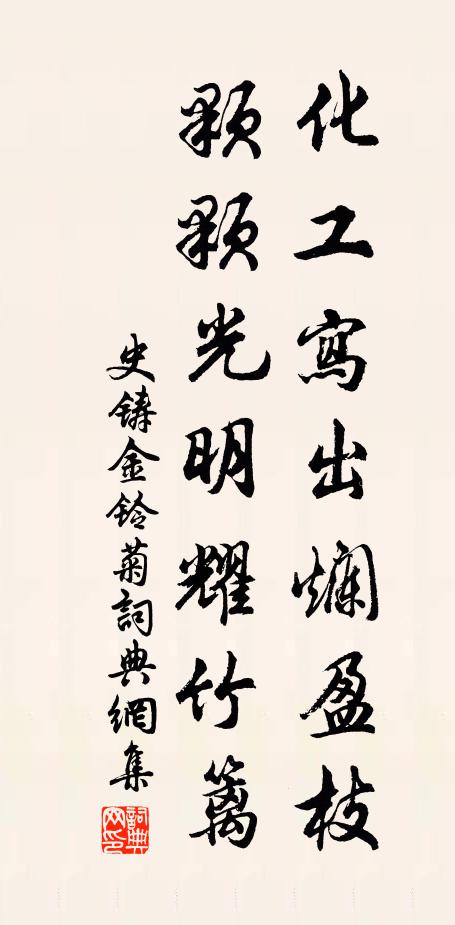 化工寫出爛盈枝
顆顆光明耀竹籬
史鑄金鈴菊詞典網集
詞典網印